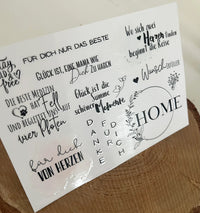 FÜR DICH NUR DAS BESTE
GLÜCK IST, EINE MAMA WIE
Dich ZU HABEN
Wo sich zwei
Herzen finden
beginnt die Reise
DIE BESTE MEDIZIN
HAT Fell
UND BEGLEITET UNS AUF
vier Pfoten
Glück ist die
Summe
schöner Momente
Wunsch
HOME
DANKE
FÜR
DICH
Für dich
VON HERZEN